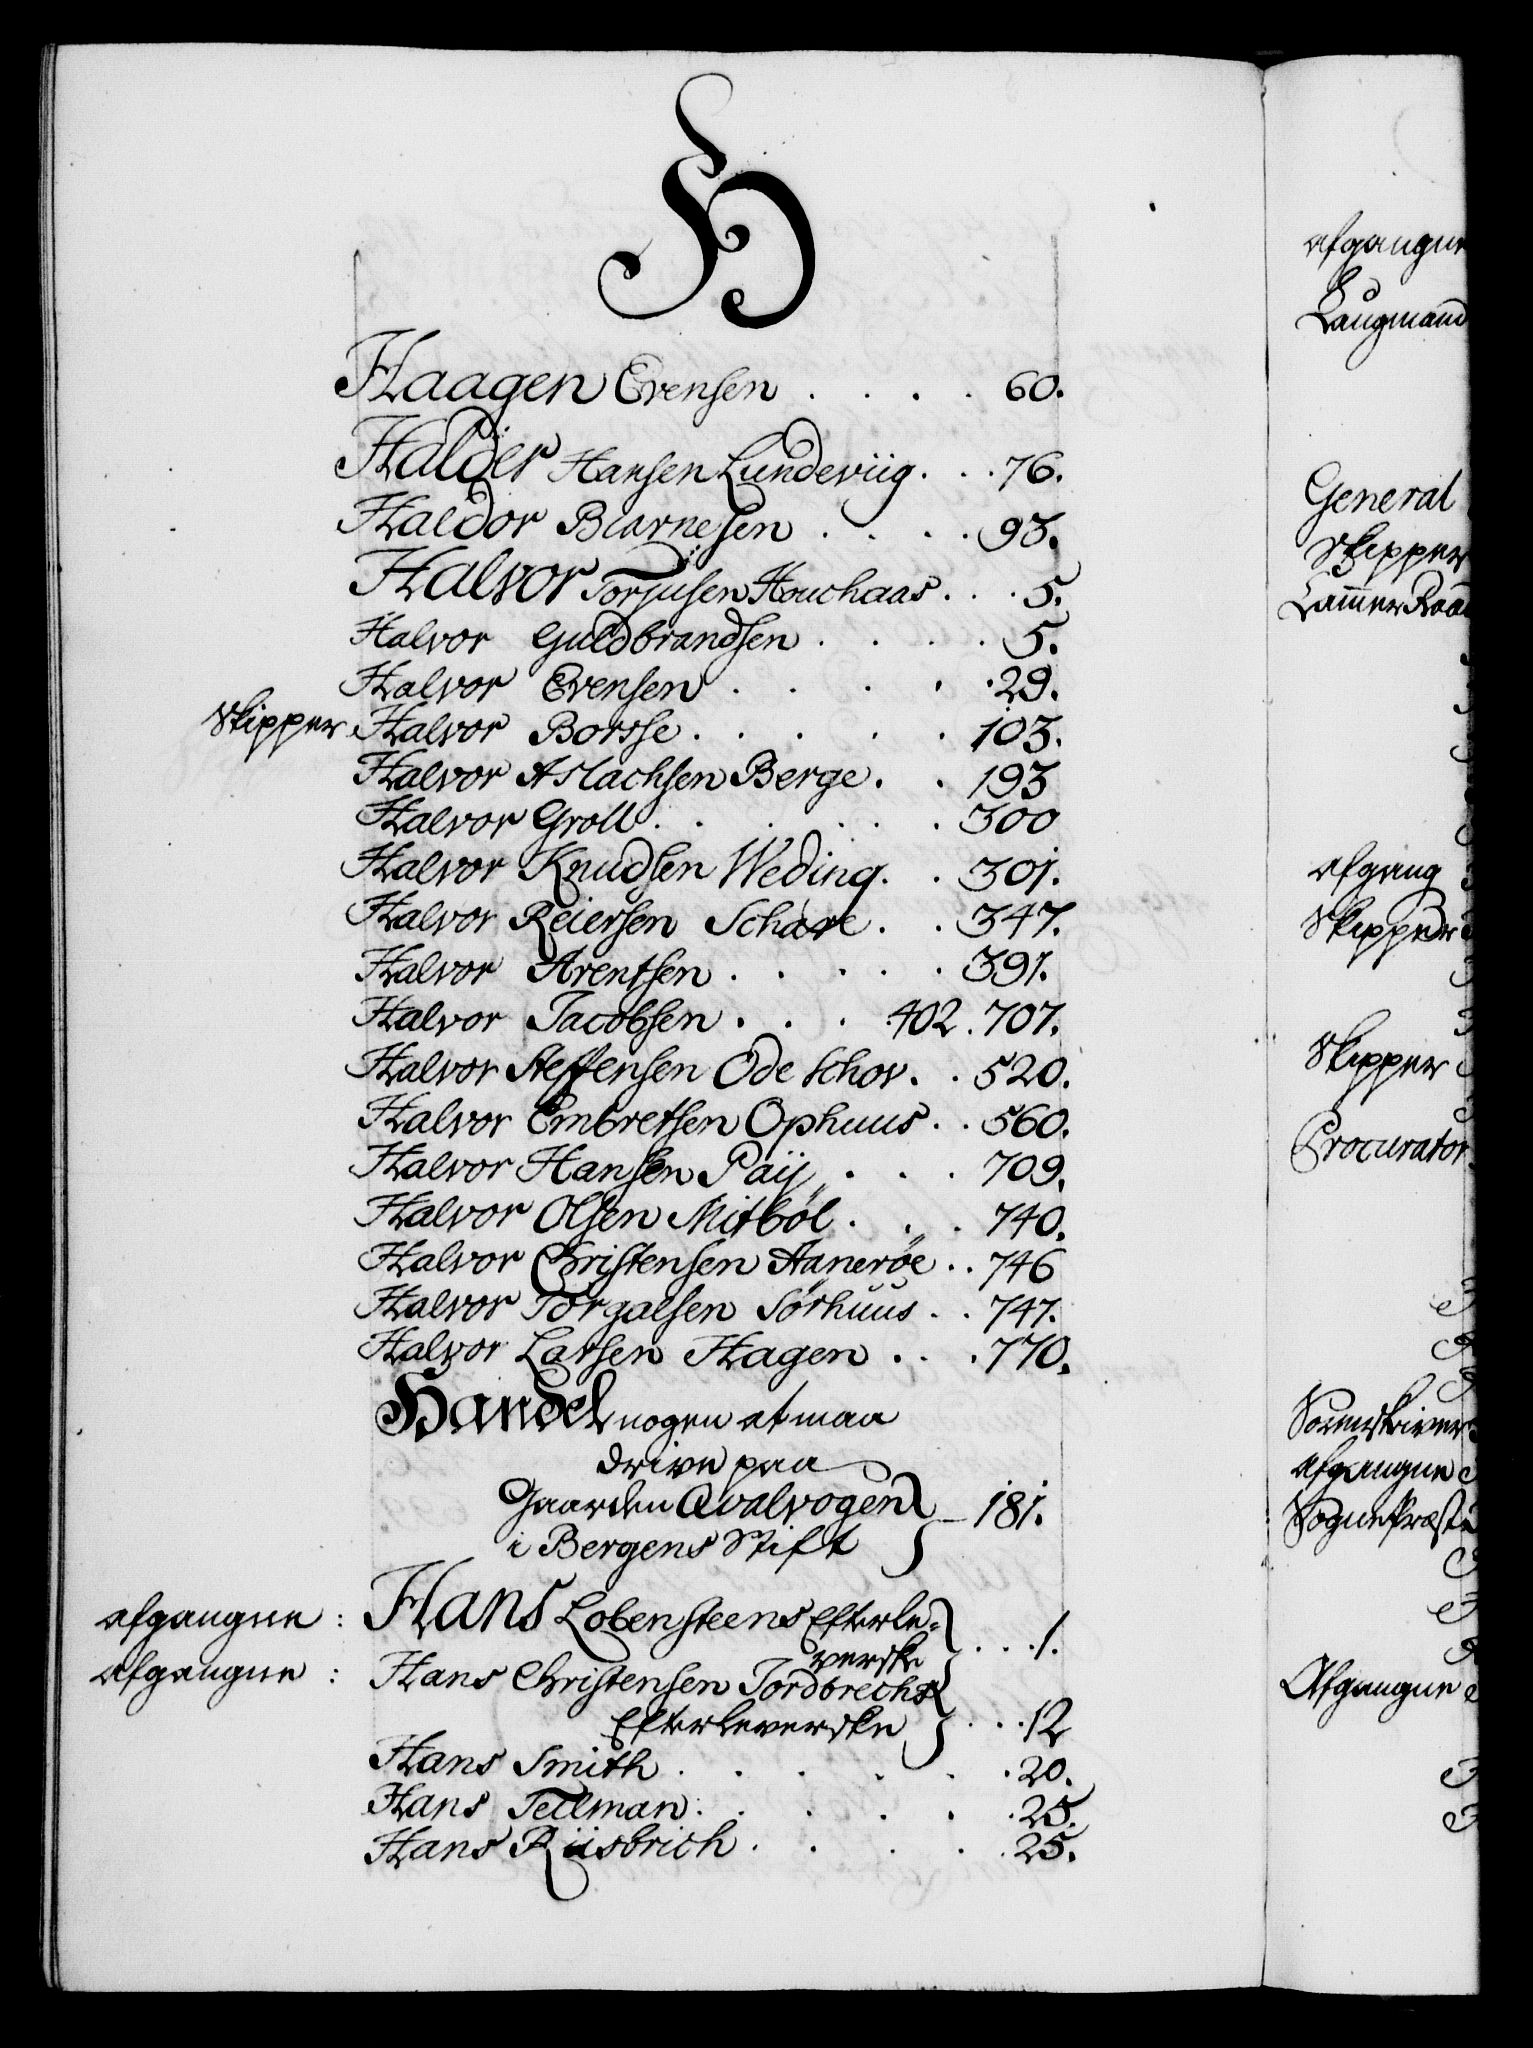 H
Haagen Evensen . . . . 60.
Halder Hansen Lundeviig . . . 76.
Haldor Biarnesen . . . . 93.
Halvor Torjusen Houchaas . . . 5.
Halvor Guldbrandsen . . . . 5.
Halvor Evensen . . . . . 29.
Skipper Halvor Borsse . . . . . 103.
Halvor Aslachsen Berge . . 193
Halvor Groll . . . . . . 300
Halvor Knudsen Weding . . 301.
Halvor Reiersen Schare . . 347.
Halvor Arentsen . . . . . 391.
Halvor Jacobsen . . . 402. 707.
Halvor Steffensen Ode schov . . 520.
Halvor Embretsen Ophuus . . 560.
Halvor Hansen Paij . . . 709.
Halvor Olsen Mitböl . . . 740.
Halvor Christensen Aanerøe . . 746
Halvor Torgalsen Sørhuus . . 747.
Halvor Larsen Hagen . . . 770.
Handel nogen at maa
drive paa
Gaarden Qvalvogen
i Bergens Stift } 181.
afgangne : Hans Lobensteens Efterle-
verske } . . . 1.
afgangne : Hans Christensen Tordbrechs
Efterleverske } . . . 12
Hans Smith . . . . . . 20.
Hans Tellman . . . . . . 25.
Hans Riisbrich . . . . . 25.
afgangne
Laugmand
General
Skipper
afgang
Skipper
Skipper
Procurator
Sorenskriver
afgangne
Afgangne